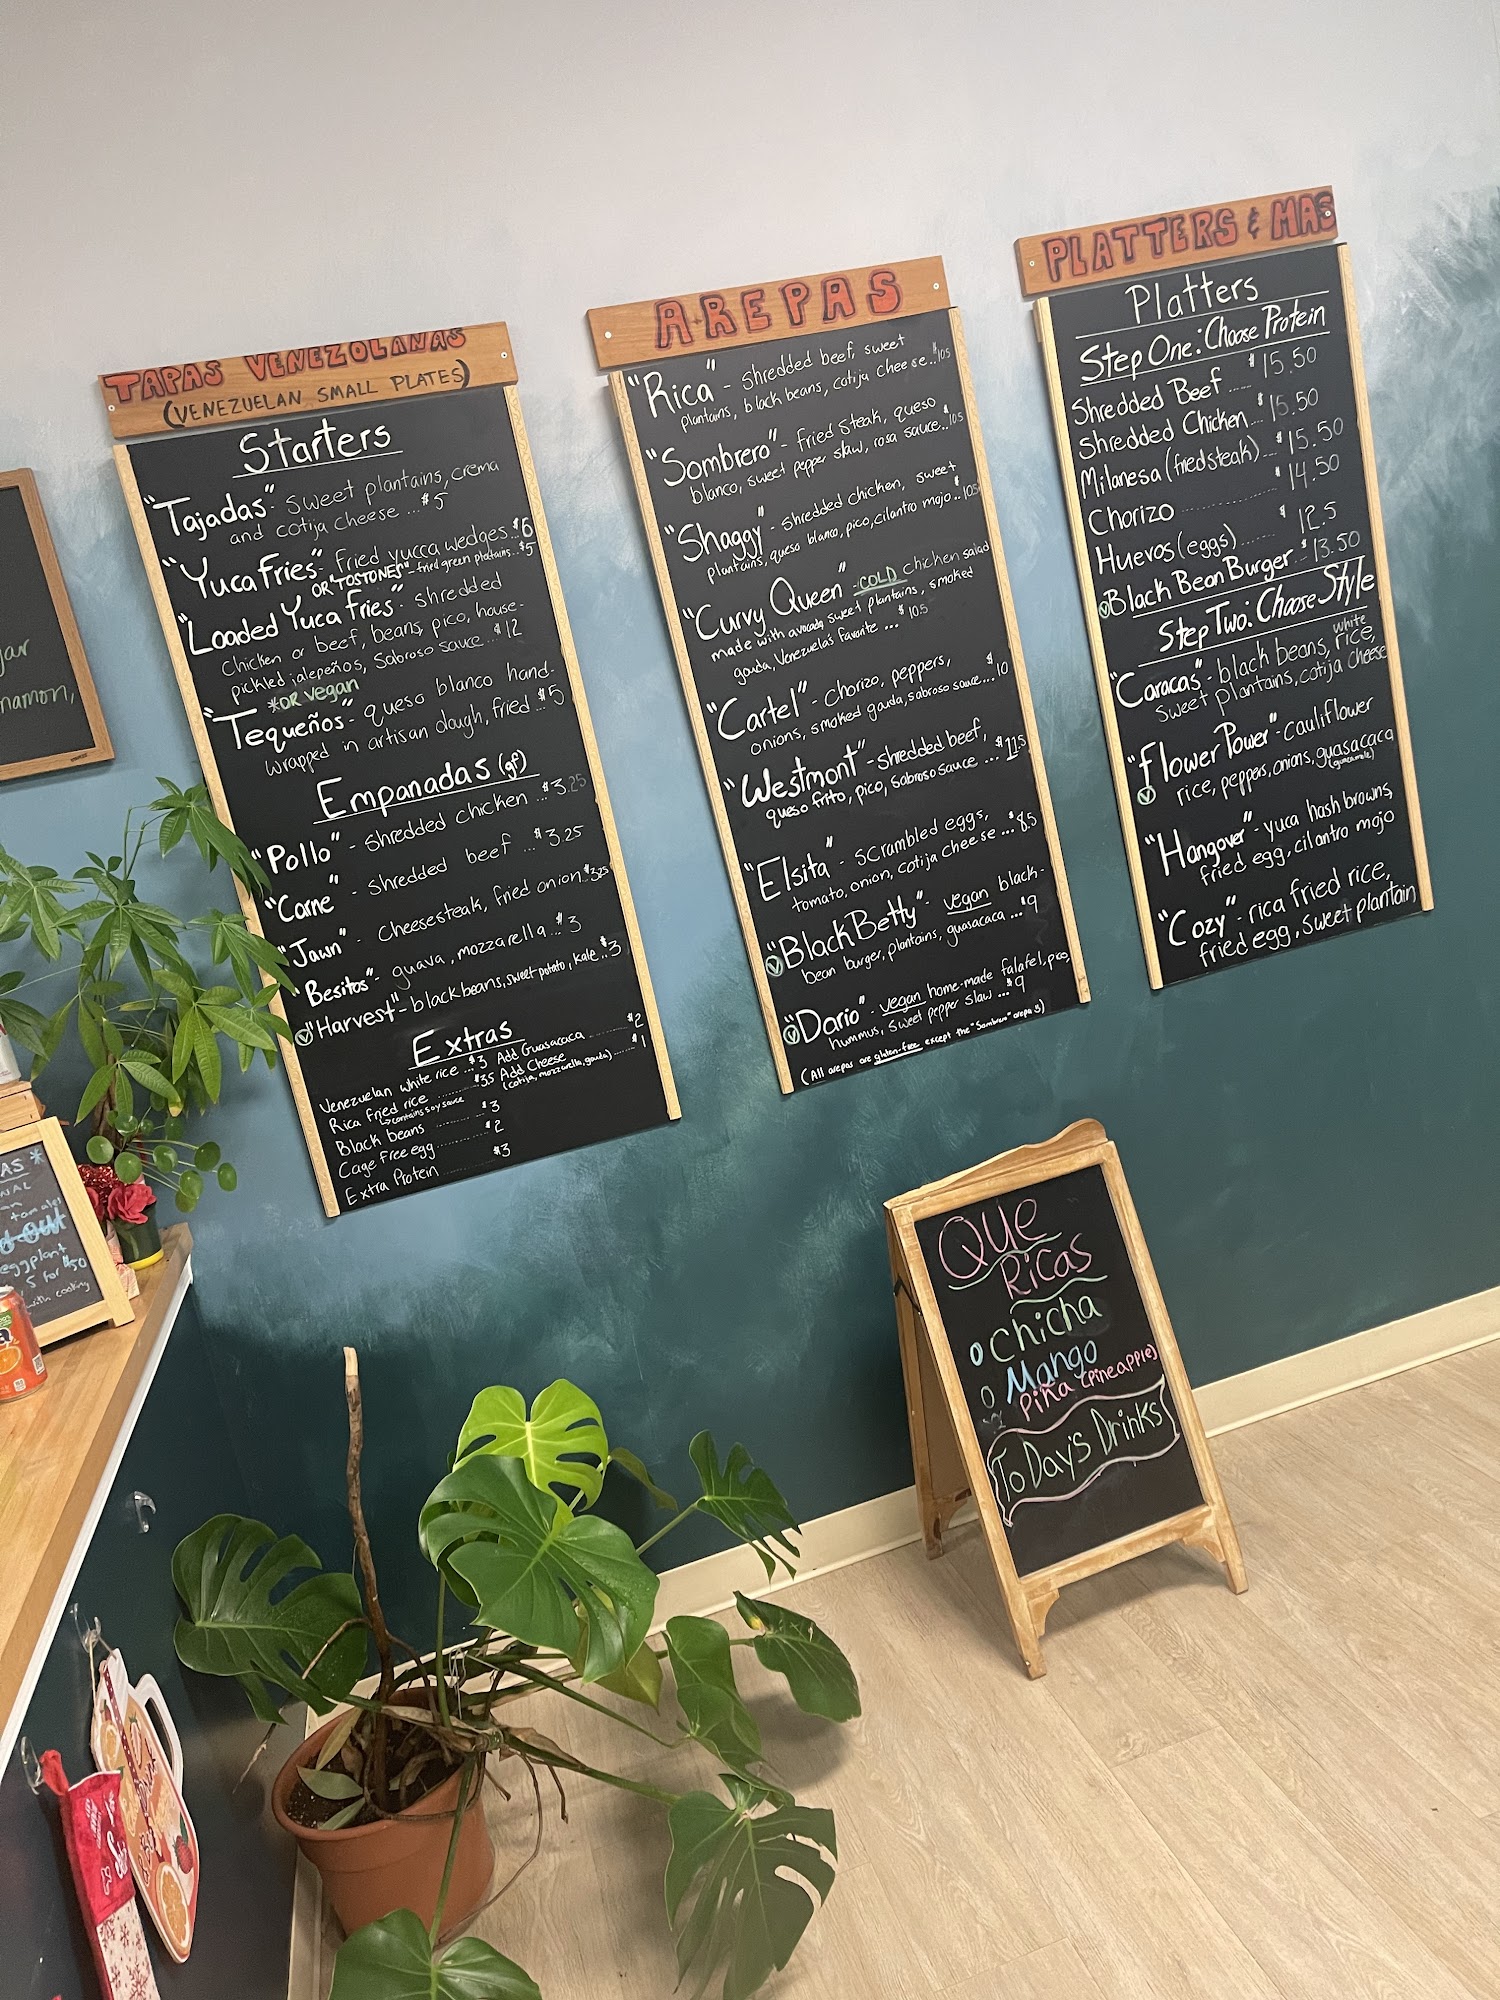 TAPAS VENEZOLANAS
(VENEZUELAN SMALL PLATES)
Starters
"Tajadas"- Sweet plantains, crema
and cotija cheese ... $5
"Yuca Fries"- Fried yucca wedges...$6
OR "TOSTONES"- fried green plantains...$5
"Loaded Yuca Fries"- Shredded
Chicken or beef, beans, pico, house-
pickled jalepeños, Sabroso sauce...$12
*OR vegan
"Tequeños"- queso blanco hand-
wrapped in artisan dough, fried..$5
Empanadas (gf)
"Pollo"- Shredded chicken ...$3.25
"Carne"- Shredded beef ...$3.25
"Jawn"- Cheesesteak, fried onion.$3.25
"Besitos"- guava, mozzarella...$3
Ⓥ"Harvest"- black beans, sweet potato, kale..$3
Extras
Venezuelan white rice ...$3
Rica fried rice ........ $3.5
↳contains soy sauce
Black beans ........ $3
Cage Free egg........ $2
Extra Protein ........ $3
Add Guasacaca ........ $2
Add Cheese ........ $1
(cotija, mozzarella, gouda)
AREPAS
"Rica"- Shredded beef, sweet
plantains, black beans, cotija cheese..$10.5
"Sombrero"- fried steak, queso
blanco, sweet pepper slaw, rosa sauce..$10.5
"Shaggy"- Shredded chicken, sweet
plantains, queso blanco, pico, cilantro mojo..$10.5
"Curvy Queen"- COLD chicken salad
made with avocado, sweet plantains, smoked
gouda, Venezuela's favorite ... $10.5
"Cartel"- Chorizo, peppers,
onions, smoked gouda, sabroso sauce....$10
"Westmont"- shredded beef,
queso frito, pico, sabroso sauce ... $11.5
"Elsita"- Scrambled eggs,
tomato, onion, cotija cheese ...$8.5
Ⓥ"Black Betty"- vegan black-
bean burger, plantains, guasacaca ...$9
Ⓥ"Dario"- vegan home-made falafel, pico,
hummus, sweet pepper slaw ...$9
(All arepas are gluten-free except the "Sombrero" arepas)
PLATTERS & MAS
Platters
Step One: Choose Protein
Shredded Beef ..... $15.50
Shredded Chicken... $15.50
Milanesa (fried steak)...$15.50
Chorizo ............ $14.50
Huevos (eggs)...... $12.5
ⓋBlack Bean Burger...$13.50
Step Two: Choose Style
"Caracas"- black beans, white rice,
sweet plantains, cotija cheese
Ⓥ"Flower Power"- cauliflower
rice, peppers, onions, guasacaca
(guacamole)
"Hangover"- yuca hash browns,
fried egg, cilantro mojo
"Cozy"- rica fried rice,
fried egg, sweet plantain
QUE
RICAS
Chicha
Mango
Piña (pineapple)
ToDay's Drinks
eggplant
5 for $50
with cooking